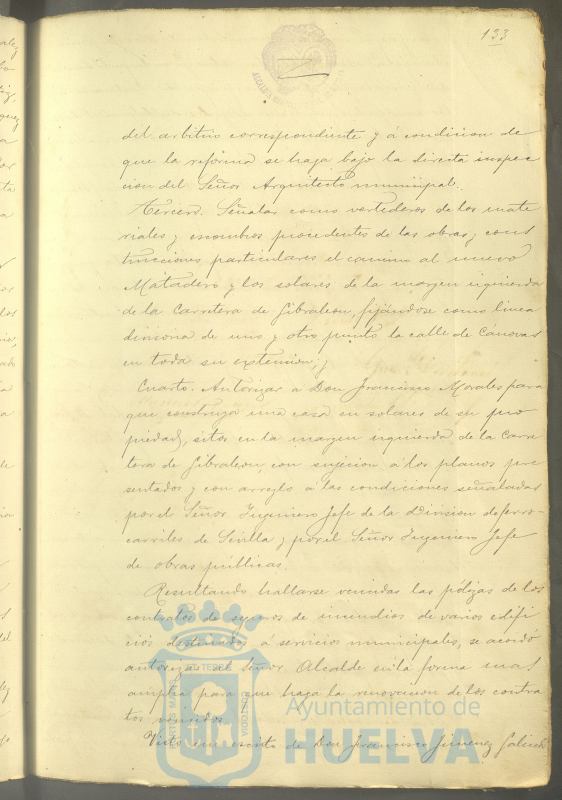 133
del arbitrio correspondiente y á condicion de
que la reforma se haga bajo la directa inspec
cion del Señor Arquitecto municipal.
Tercero. Señalar como vertederos de los mate
riales y escombros procedentes de las obras y cons
trucciones particulares el camino al nuevo
Matadero y los solares de la margen izquierda
de la Carretera de Gibraleon, fijándose como linea
divisoria de uno y otro punto la calle de Cánovas
en toda su extension; y
Cuarto. Autorizar a Don Francisco Morales para
que construya una casa en solares de su pro
piedad, sitos en la margen izquierda de la Carre
tera de Gibraleon, con sujecion á los planos pre
sentados y con arreglo á las condiciones señaladas
por el Señor Ingeniero Jefe de la Division de ferro-
carriles de Sevilla y por el Señor Ingeniero Jefe
de obras públicas.
Resultando hallarse vencidas las pólizas de los
contratos de seguros de incendios de varios edifi
cios destinados á servicios municipales, se acordó
autorizar al Señor Alcalde en la forma mas
amplia para que haga la renovacion de los contra
tos vencidos.
Visto un escrito de Don Francisco Jimenez
Ayuntamiento de
HUELVA